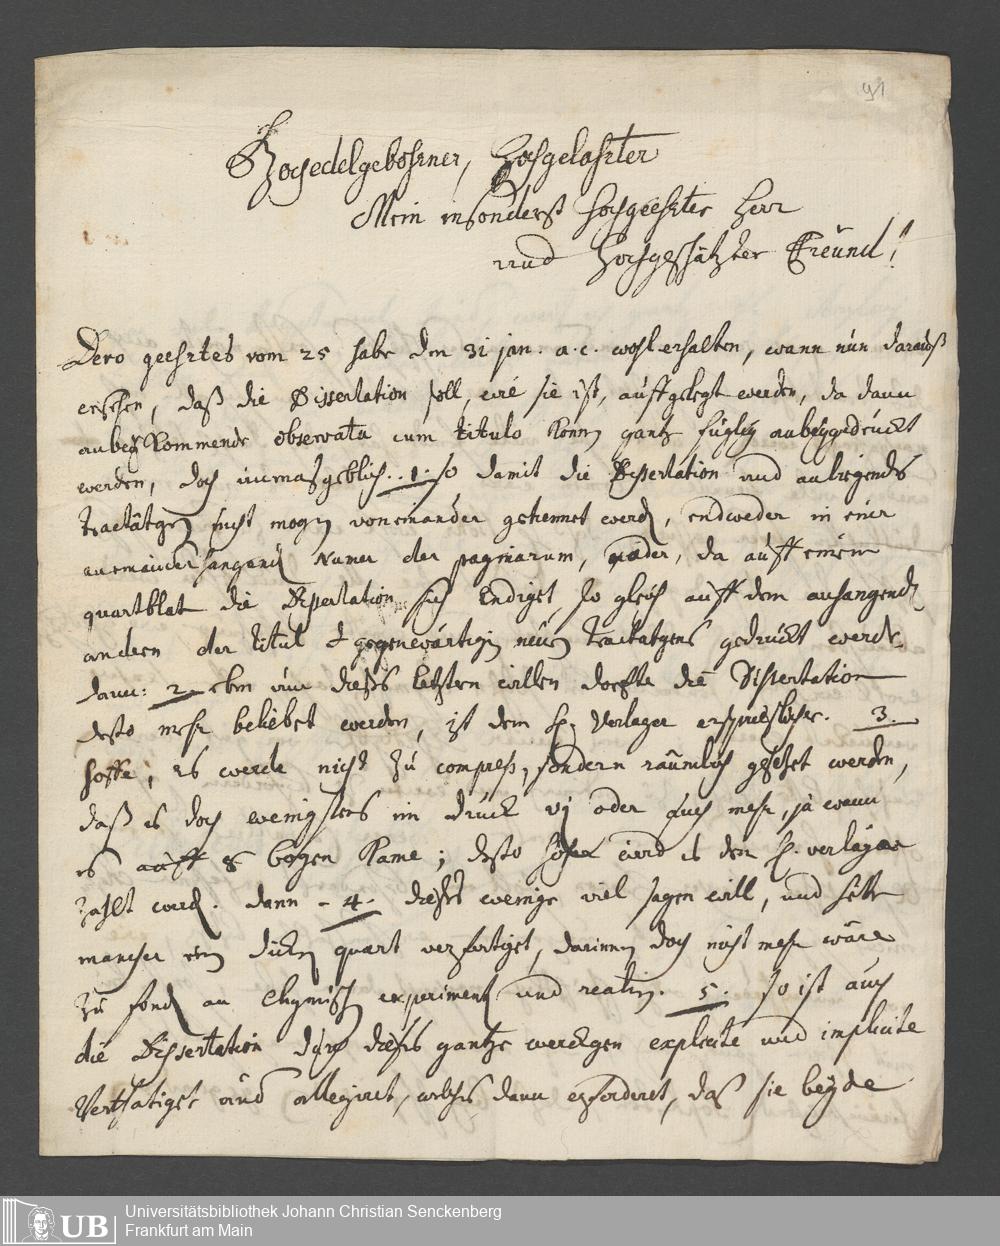 91
Hochedelgebohrner, Hochgelahrter
Mein insonderst hochgeehrter Herr
und Hochgeschätzter Freund!
Dero geehrtes vom 25 habe den 31 jan. a. c. wohl erhalten, wann nun darauß
ersehen, daß die Dissertation soll, wie sie ist, aufgelegt werden, da dann
anbey kommende observata cum titulo könn gantz füglich anbeygedruckt
werden, doch unmasgeblich. 1. so damit die Dissertation und anliegendes
tractätgen nicht mögen voneinander getrennet werd, endweder in einer
aneinanderhangend Numer der paginarum, oder, da auff einem
quartblat die Dissertation sich Endiget so gleich auff dem anhangend
andern der titul gegenwärtign neuen tractatgens gedruckt werde
dann: 2. eben um dieses letzten willen dorffte die Dissertation
desto mehr beliebet werden, ist dem H. Verlager ersprieslicher. 3.
hoffe, es werde nicht zu compress, sondern räumlich gesetzet werden,
daß es doch wenigstens im druck vj oder auch mehr, ja wann
es auff 8 bogen käme; desto höher wird es dem H. verläger
zahlt werd. dann 4. dieses wenige viel sagen will, und hette
mancher ein dicken quart verfertiget, darinnen doch nicht mehr wäre
zu find an Chymisch experiment und realien. 5. so ist auch
die Dissertation durch dieses gantze werckgen explicite und implicite
Verthätiget und allegiret, welches dann erfordert, daß sie beyde
Universitätsbibliothek Johann Christian Senckenberg
UB
Frankfurt am Main